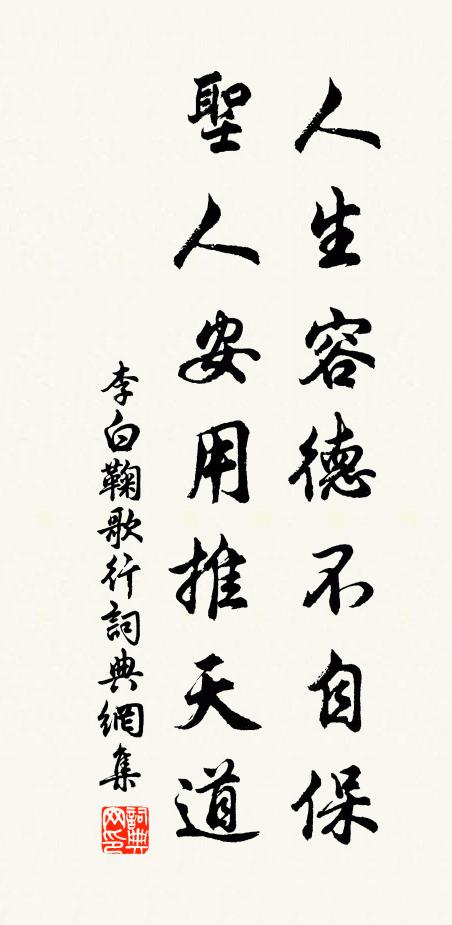 人生容德不自保
聖人安用推天道
李白鞠歌行詞典網集
詞典网印